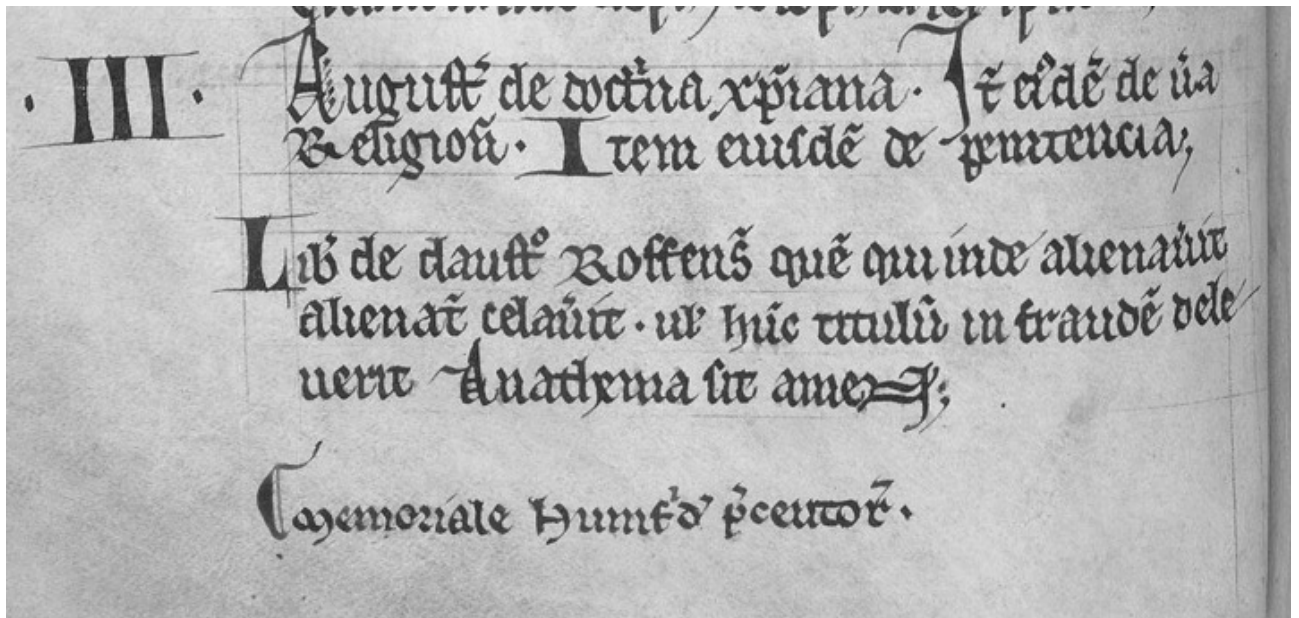 · III · Auguſt̄ de doct̾na xp̄iana · It̄ eiꝰdē de ūa
Religioñ · Item eiuſdē de penitencia;
Lib̾ de clauſtͦ Roffenſ̄ quē qui inde alienau̾it
alienat̄ celau̾it · uł hūc titulū in fraudē dele
uerit Anathema ſit amen;
Memoriale Humf̾d̾ p̾centor̄ .